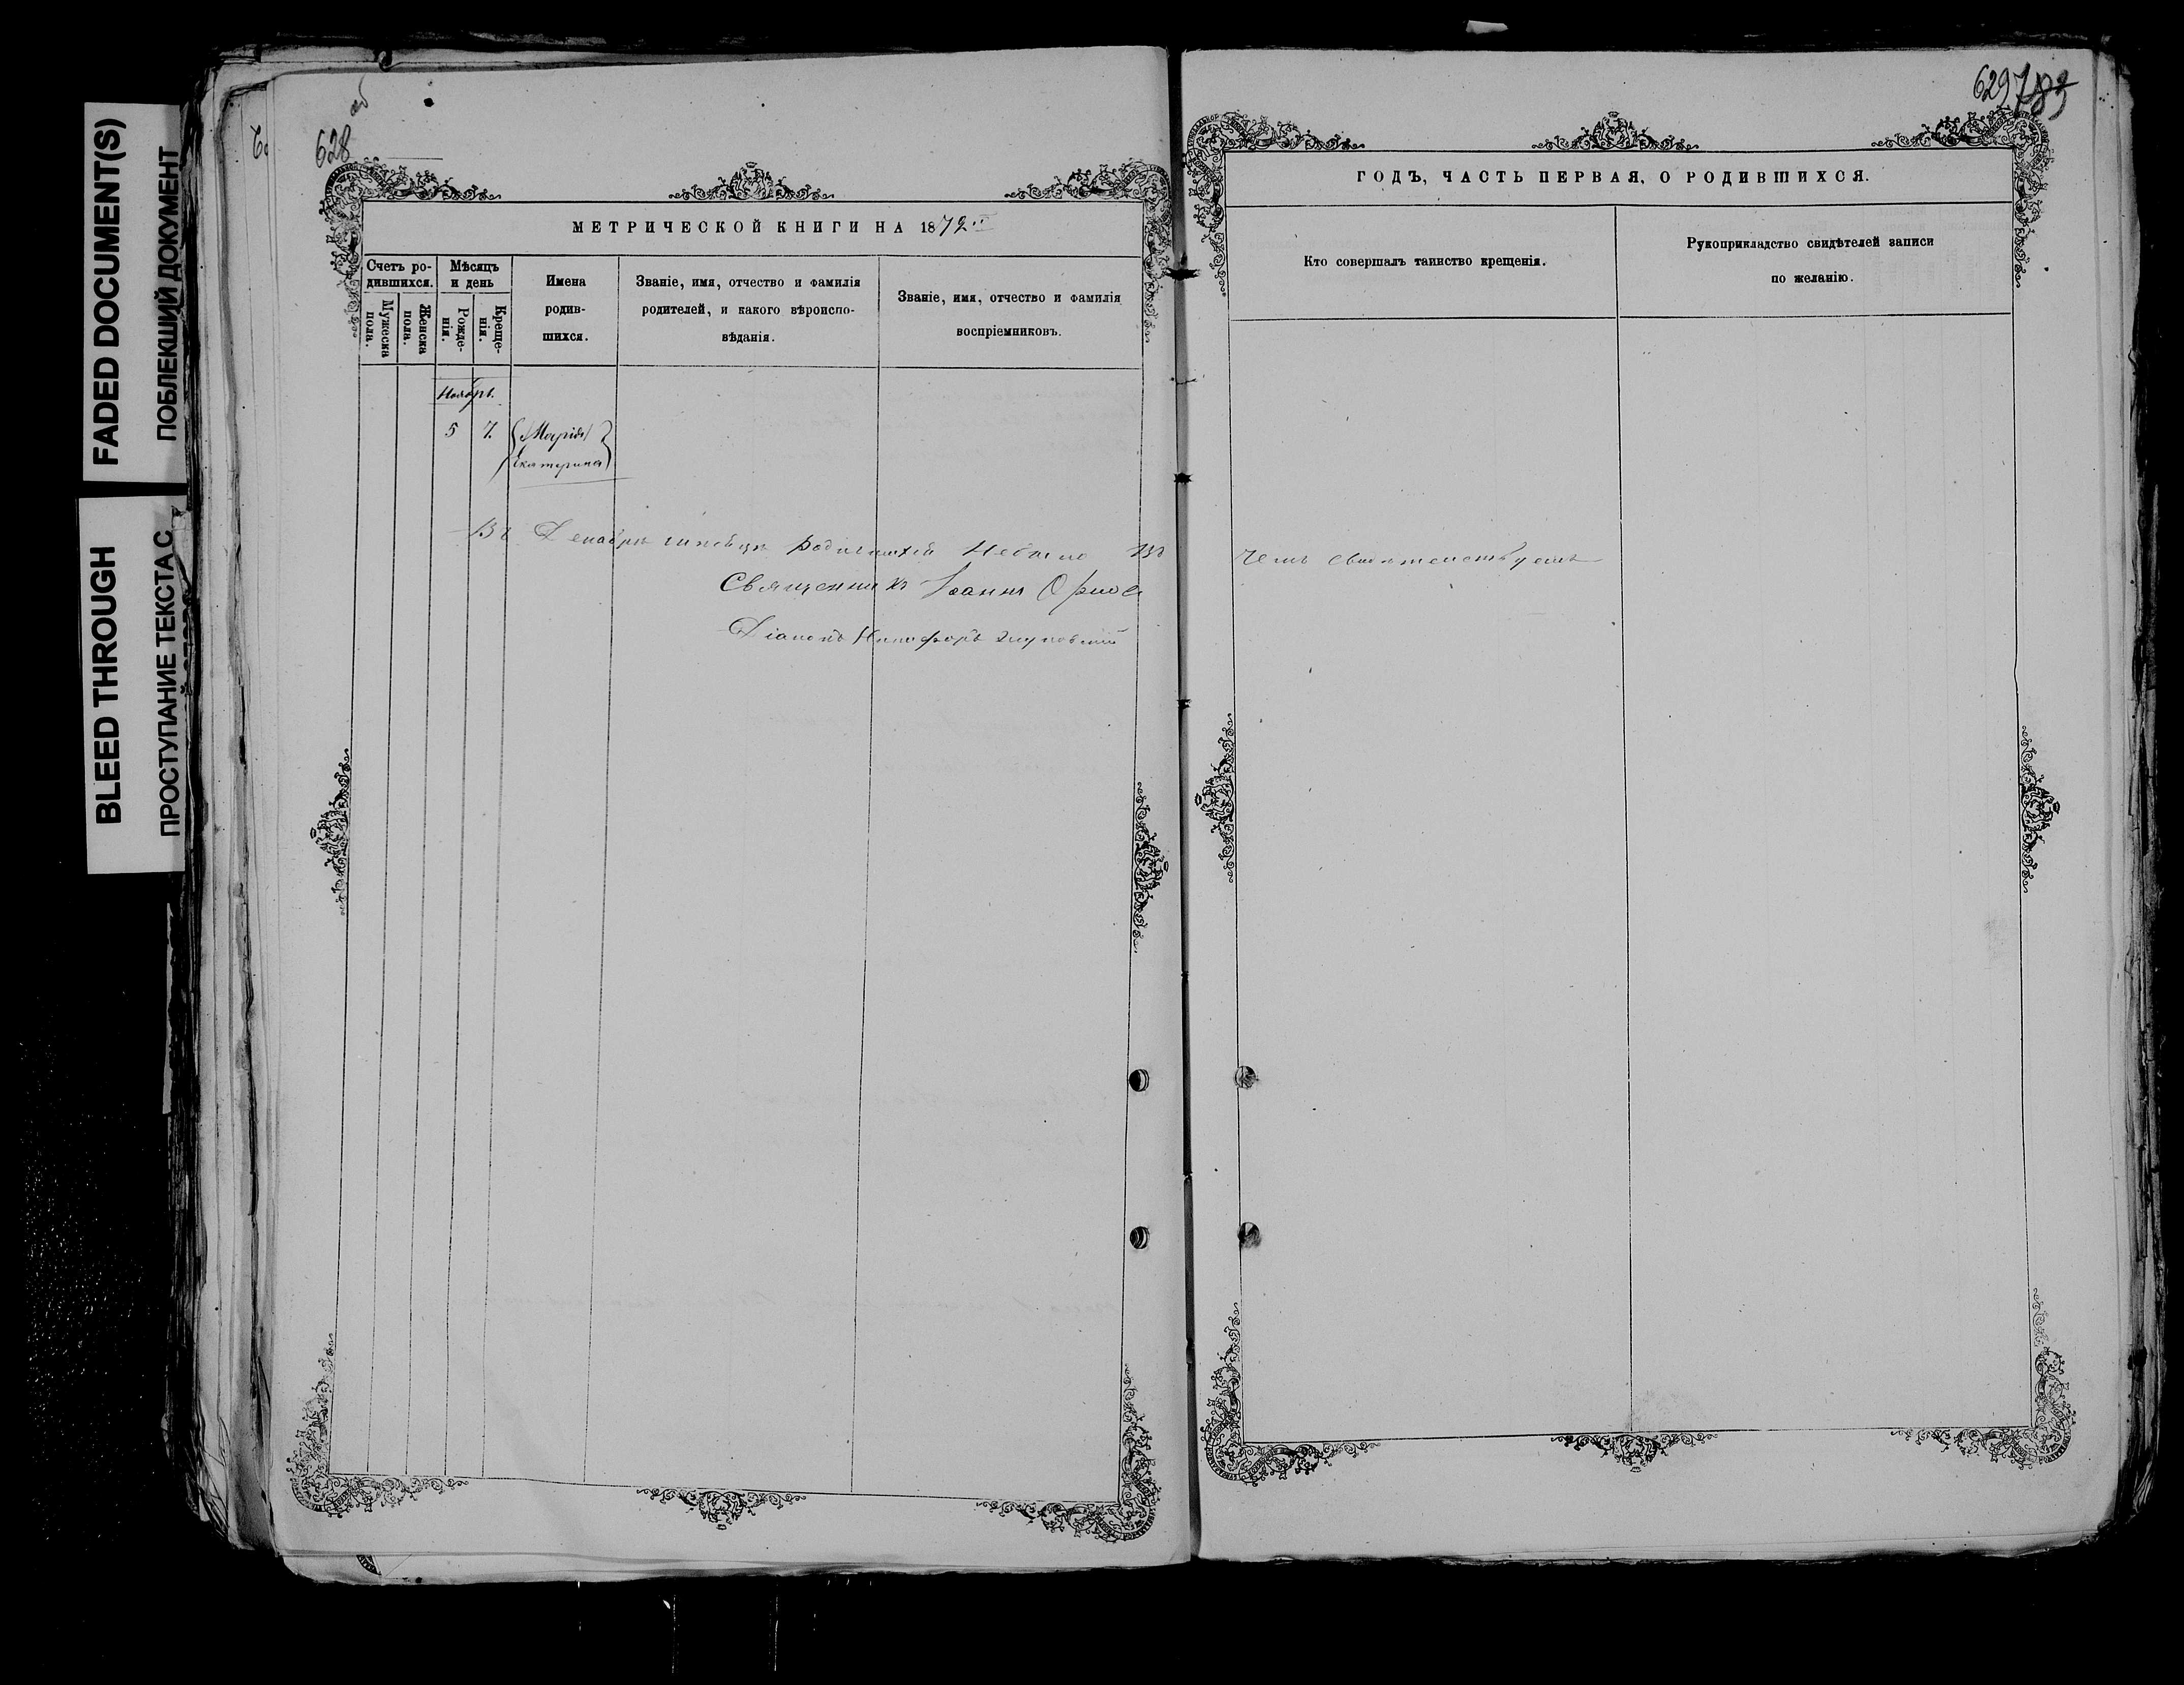 FADED DOCUMENT(S)
ПОБЛЕКШИЙ ДОКУМЕНТ
BLEED THROUGH
ПРОСТУПАНИЕ ТЕКСТА С
628 об
МЕТРИЧЕСКОЙ КНИГИ НА 1872й
Счетъ ро-
дившихся.
Мужеска
пола.
Женска
пола.
Мѣсяцъ
и день
Рожде-
нія.
Креще-
нія.
Имена
родив-
шихся.
Званіе, имя, отчество и фамилія
родителей, и какого вѣроиспо-
вѣданія.
Званіе, имя, отчество и фамилія
воспріемниковъ.
Ноябрь.
5 7. Марія
Екатерина
Въ Декабрѣ мѣсяцѣ родившихся Небыло
Священникъ Іоаннъ
Діаконъ Никифоръ
629
ГОДЪ, ЧАСТЬ ПЕРВАЯ, О РОДИВШИХСЯ.
Кто совершалъ таинство крещенія.
Рукоприкладство свидѣтелей записи
по желанію.
чемъ свидѣтельствуемъ